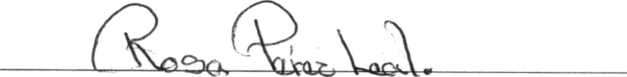 Rosa Pérez Leal.